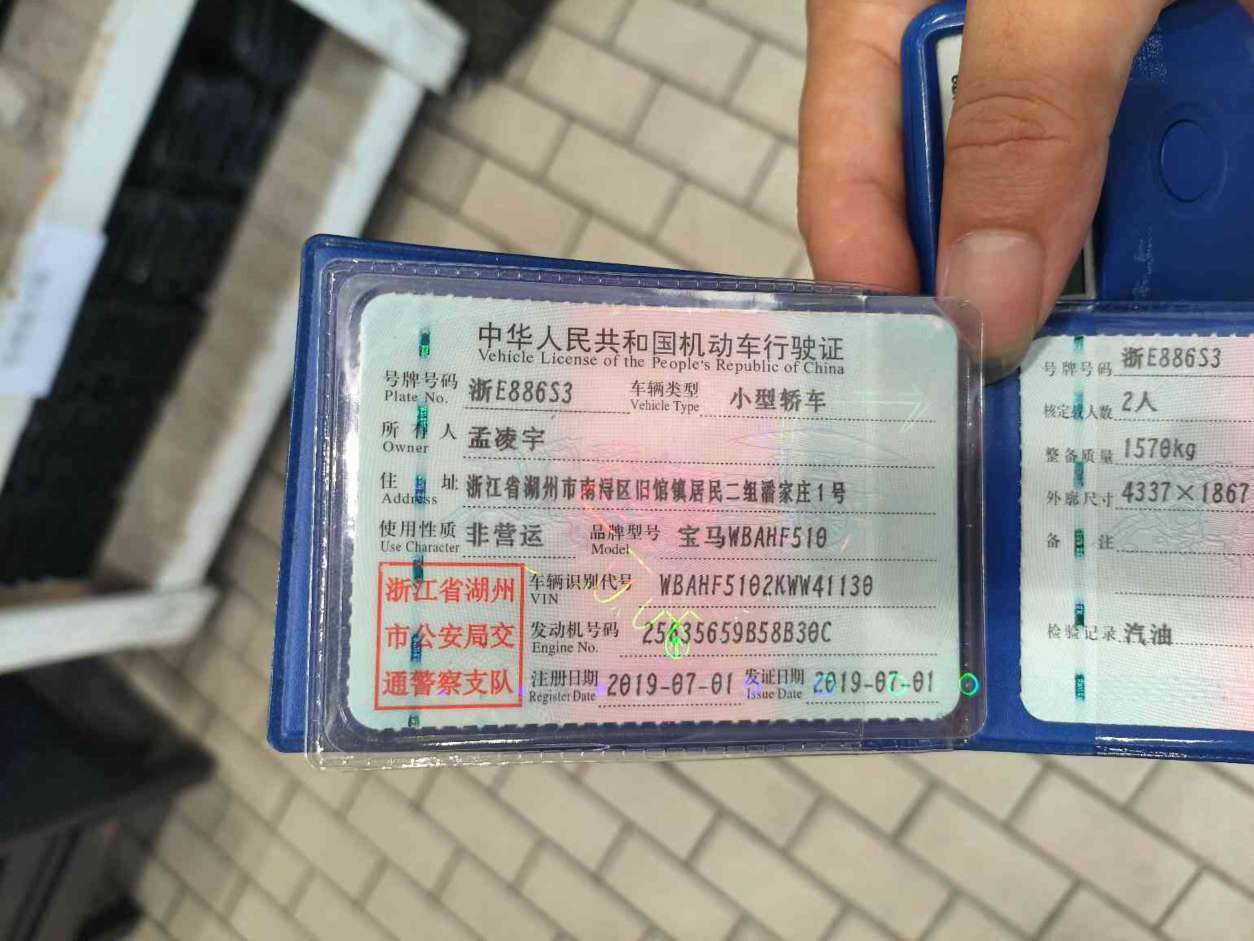 中华人民共和国机动车行驶证
Vehicle License of the People's Republic of China
号牌号码 浙E886S3 车辆类型 小型轿车
Plate No. Vehicle Type
所有人 孟凌宇
Owner
住址 浙江省湖州市南浔区旧馆镇居民二组潘家庄1号
Address
使用性质 非营运 品牌型号 宝马WBAHF510
Use Character Model
车辆识别代号 WBAHF5102KWW41130
VIN
发动机号码 25635659B58B30C
Engine No.
注册日期 2019-07-01 发证日期 2019-07-01
Register Date Issue Date
浙江省湖州
市公安局交
通警察支队
号牌号码 浙E886S3
核定载人数 2人
整备质量 1570kg
外廓尺寸 4337×1867
备注
检验记录 汽油